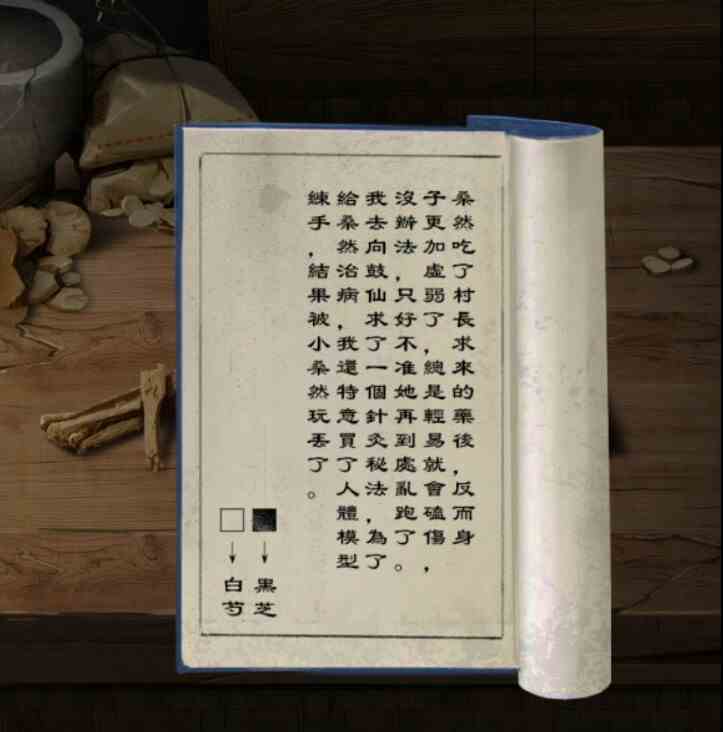 桑然吃了村長求來的藥後，反而身
子更加虛弱了，總是輕易就會磕傷，
沒辦法，只好不准她再到處亂跑了。
我去向鼓仙求了一個針灸秘法，為了
給桑然治病，我還特意買了人體模型
練手，結果被小桑然玩丟了。
■→黑芝
□→白芍